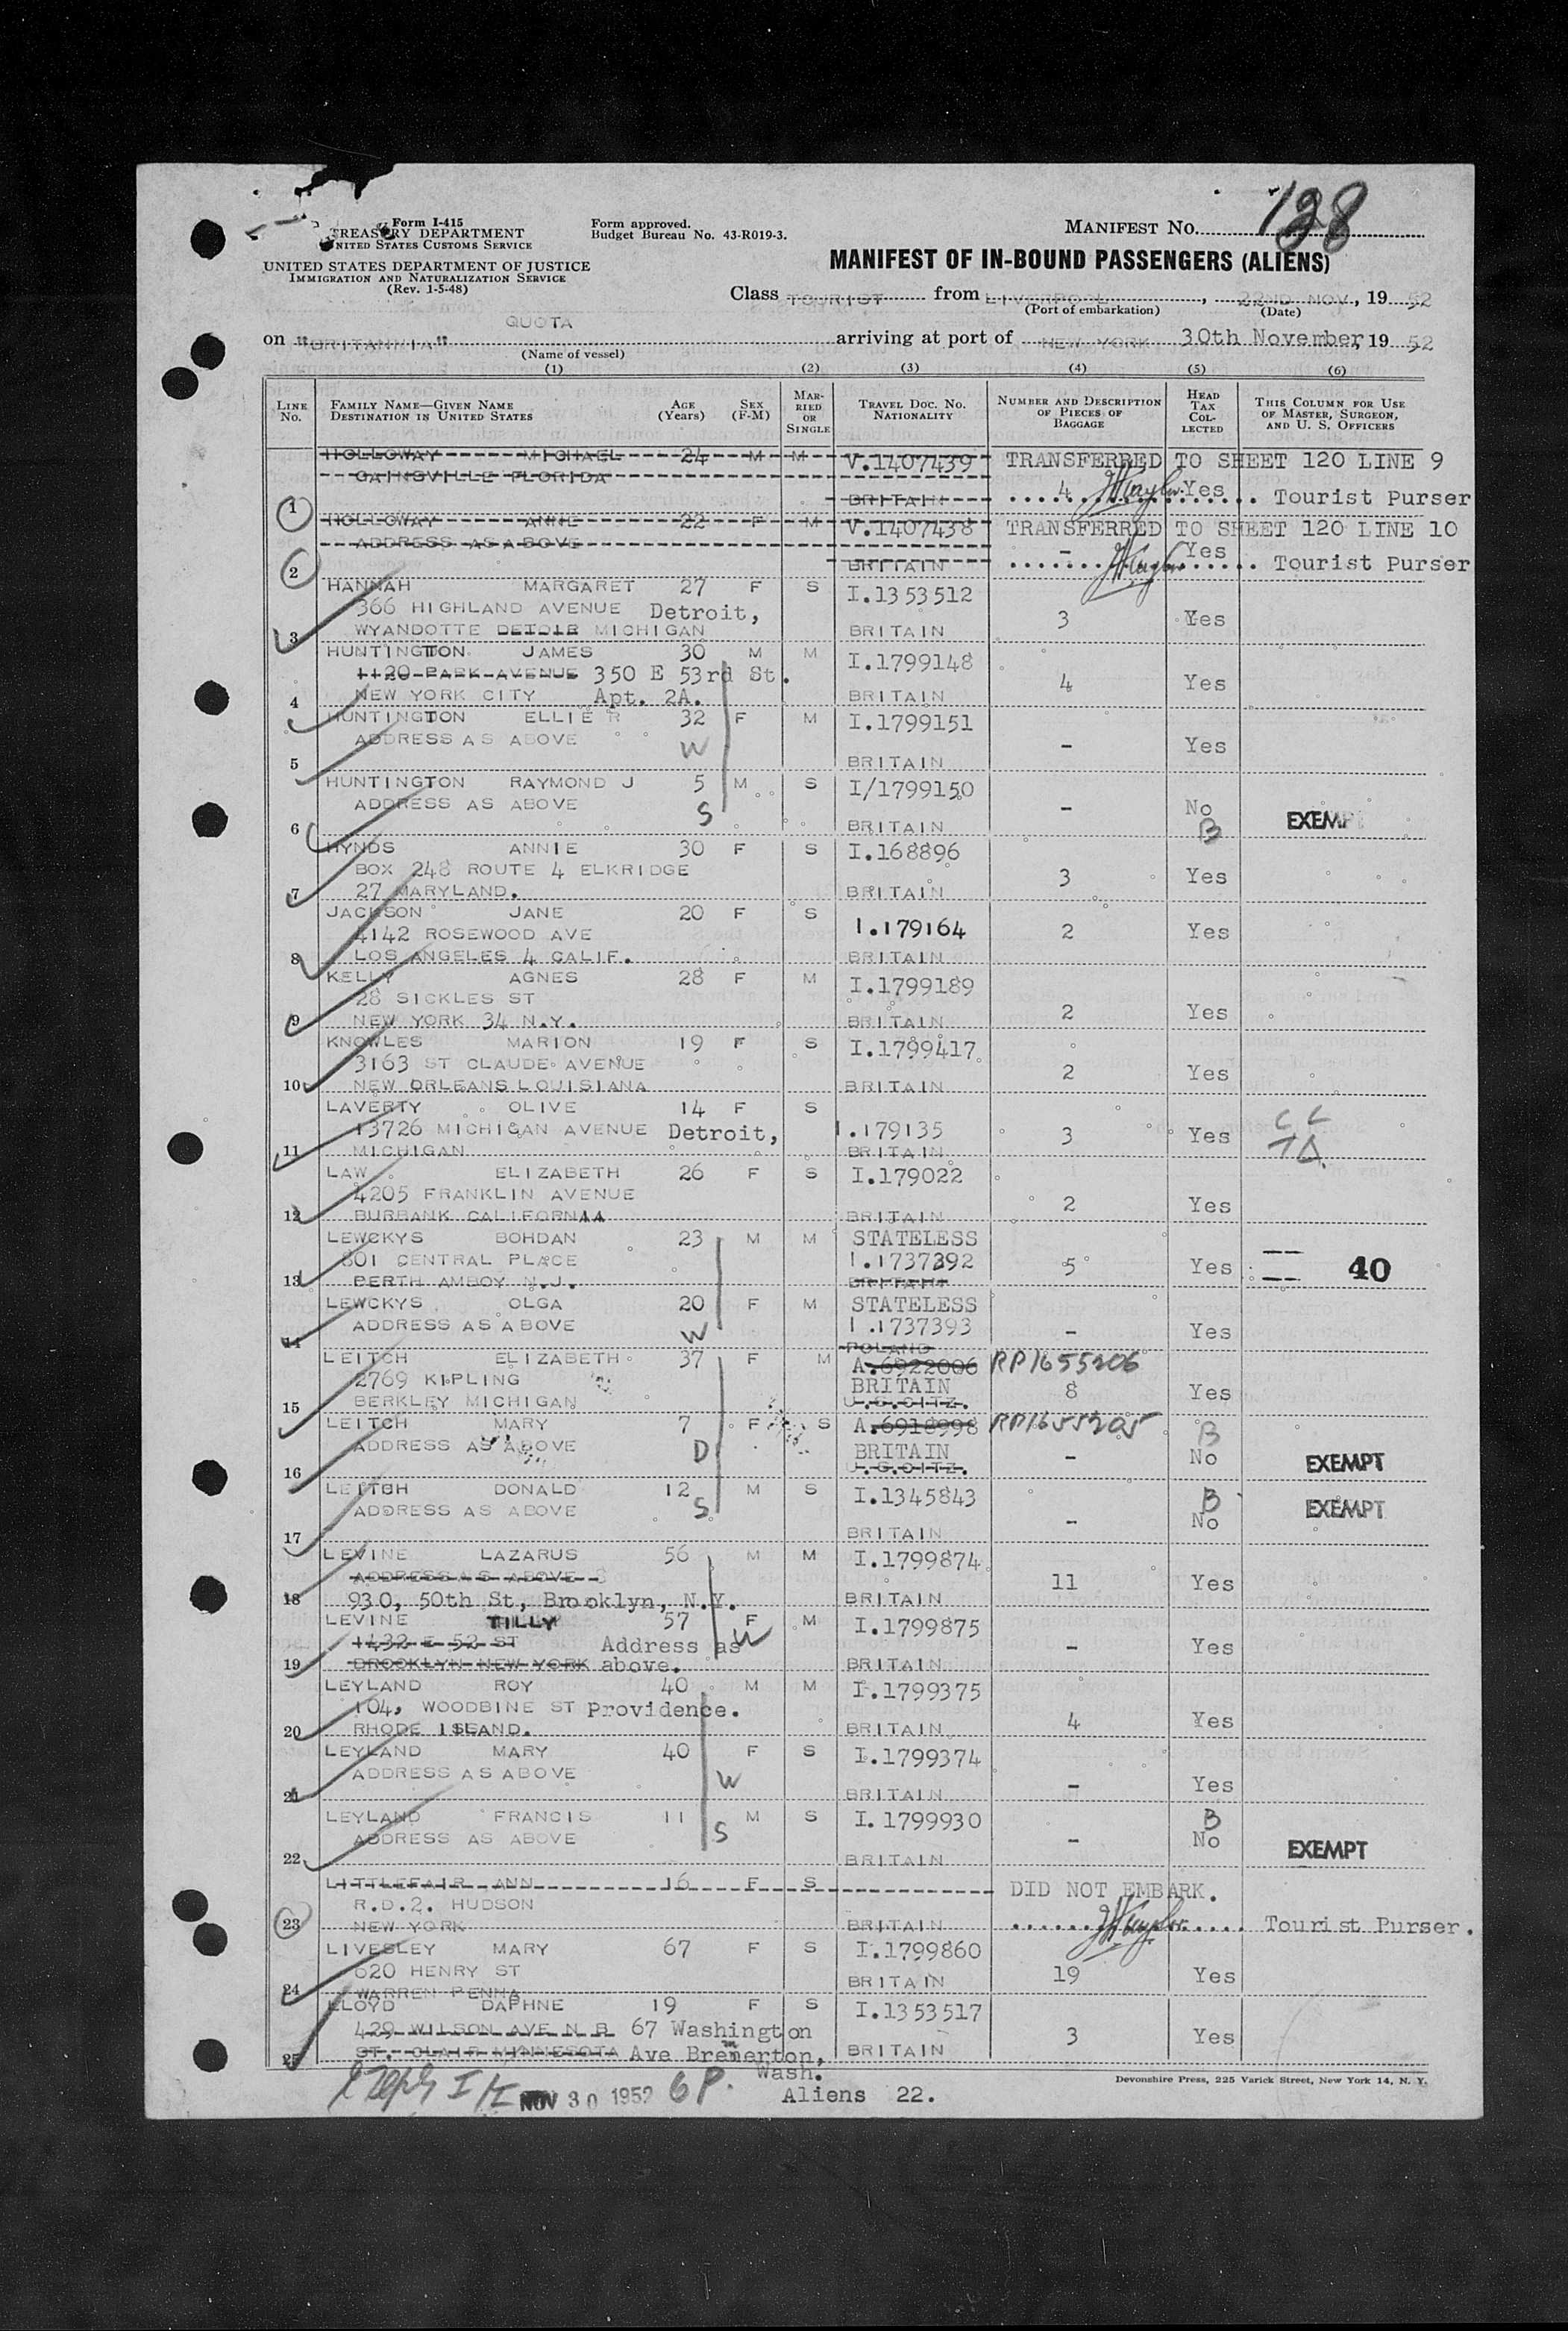 Form I-415
TREASURY DEPARTMENT
UNITED STATES CUSTOMS SERVICE
UNITED STATES DEPARTMENT OF JUSTICE
IMMIGRATION AND NATURALIZATION SERVICE
(Rev. 1-5-48)
Form approved.
Budget Bureau No. 43-R019-3.
MANIFEST No. 138
MANIFEST OF IN-BOUND PASSENGERS (ALIENS)
Class TOURIST from LIVERPOOL, 22ND NOV, 19 52
(Port of embarkation) (Date)
QUOTA
on "BRITANNIA" arriving at port of NEW YORK 30th November, 19 52
(Name of vessel)
(1) (2) (3) (4) (5) (6)
LINE No. FAMILY NAME—GIVEN NAME DESTINATION IN UNITED STATES AGE (Years) SEX (F-M) MARRIED OR SINGLE TRAVEL DOC. NO. NATIONALITY NUMBER AND DESCRIPTION OF PIECES OF BAGGAGE HEAD TAX COLLECTED THIS COLUMN FOR USE OF MASTER, SURGEON, AND U. S. OFFICERS
HOLLOWAY MICHAEL 24 M M V.1407439 TRANSFERRED TO SHEET 120 LINE 9
GAINSVILLE FLORIDA
1 BRITAIN 4 Yes Tourist Purser
HOLLOWAY ANNE 22 F M V.1407438 TRANSFERRED TO SHEET 120 LINE 10
ADDRESS AS ABOVE
2 BRITAIN - Yes Tourist Purser
HANNAH MARGARET 27 F S I.1353512
366 HIGHLAND AVENUE Detroit, 3 Yes
3 WYANDOTTE DETOIR MICHIGAN BRITAIN
HUNTINGTON JAMES 30 M M I.1799148
1120 PARK AVENUE 350 E 53rd St. 4 Yes
4 NEW YORK CITY Apt. 2A. BRITAIN
HUNTINGTON ELLIE R 32 F M I.1799151
ADDRESS AS ABOVE W - Yes
5 BRITAIN
HUNTINGTON RAYMOND J 5 M S I/1799150
ADDRESS AS ABOVE S - No EXEMPT
6 BRITAIN B
HYNDS ANNIE 30 F S I.168896
BOX 248 ROUTE 4 ELKRIDGE 3 Yes
7 27 MARYLAND. BRITAIN
JACKSON JANE 20 F S I.179164
4142 ROSEWOOD AVE 2 Yes
8 LOS ANGELES 4 CALIF. BRITAIN
KELLY AGNES 28 F M I.1799189
28 SICKLES ST 2 Yes
9 NEW YORK 34 N.Y. BRITAIN
KNOWLES MARION 19 F S I.1799417
3163 ST CLAUDE AVENUE 2 Yes
10 NEW ORLEANS LOUISIANA BRITAIN
LAVERTY OLIVE 14 F S
13726 MICHIGAN AVENUE Detroit, I.179135 3 Yes
11 MICHIGAN BRITAIN
LAW ELIZABETH 26 F S I.179022
4205 FRANKLIN AVENUE 2 Yes
12 BURBANK CALIFORNIA BRITAIN
LEWCKYS BOHDAN 23 M M STATELESS
801 CENTRAL PLACE I.1737392 5 Yes 40
13 PERTH AMBOY N.J. BRITAIN
LEWCKYS OLGA 20 F M STATELESS
ADDRESS AS ABOVE W I.1737393 - Yes
14 POLAND
LEITCH ELIZABETH 37 F M A.6922006 RP1655206
2769 KIPLING BRITAIN 8 Yes
15 BERKLEY MICHIGAN U.S.CITZ.
LEITCH MARY 7 F S A.6918998 RP1655205 B
ADDRESS AS ABOVE D BRITAIN - No EXEMPT
16 U.S.CITZ.
LEITCH DONALD 12 M S I.1345843 B EXEMPT
ADDRESS AS ABOVE S - No
17 BRITAIN
LEVINE LAZARUS 56 M M I.1799874
ADDRESS AS ABOVE 11 Yes
18 930, 50th St, Brooklyn, N.Y. BRITAIN
LEVINE TILLY 57 F M I.1799875
1432 E 52 ST Address as W - Yes
19 BROOKLYN NEW YORK above. BRITAIN
LEYLAND ROY 40 M M I.1799375
104, WOODBINE ST Providence. 4 Yes
20 RHODE ISLAND. BRITAIN
LEYLAND MARY 40 F S I.1799374
ADDRESS AS ABOVE W - Yes
21 BRITAIN
LEYLAND FRANCIS 11 M S I.1799930 B
ADDRESS AS ABOVE S - No EXEMPT
22 BRITAIN
LITTLEFAIR ANN 16 F S DID NOT EMBARK.
R.D.2. HUDSON
23 NEW YORK BRITAIN Tourist Purser.
LIVESLEY MARY 67 F S I.1799860
620 HENRY ST 19 Yes
24 WARREN PENNA BRITAIN
LLOYD DAPHNE 19 F S I.1353517
429 WILSON AVE N B 67 Washington 3 Yes
25 ST. CLAIR MINNESOTA Ave Bremerton, BRITAIN
Wash.
Devonshire Press, 225 Varick Street, New York 14, N. Y.
NOV 30 1952 6P. Aliens 22.